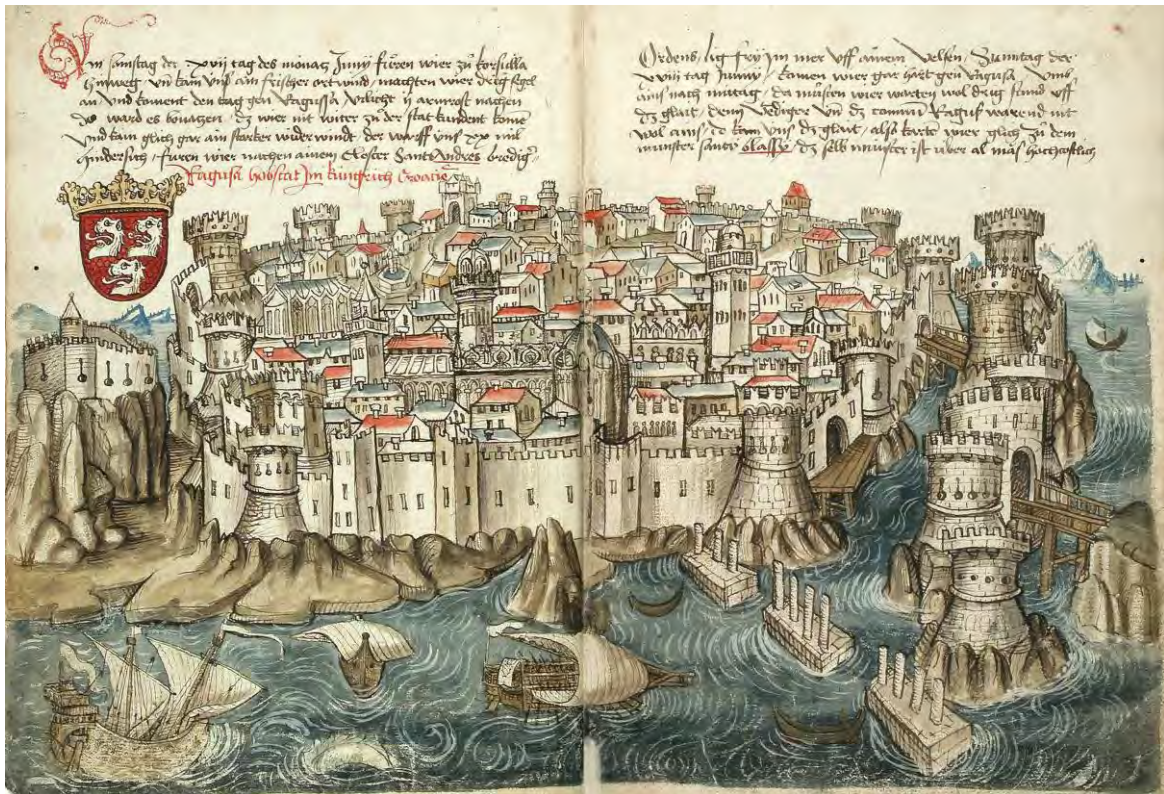 Am samstag der xvij tag des monatz Junÿ fůren wier zů korsulla
hinweg vn kam vnß ain frischer ort wind / machten wier drÿg segel
an vnd koment den tag gen Ragussa Vilicht ij armrost nachen
do ward es bonatzen / dz wier nit witer zů der stat kundent kome
vnd kam glich gar ain starcker wider windt der warff vns xx mil
hindersich / fůren wier nachen ainem Closter Sant Andres bredig
Ragusa hobstat Im kungrich Croatie
Ordens / lig frÿ Im mer vff ainem velsen / Sunntag der
xviij tag Junnÿ / komen wier gar hart gen Ragusa / vmb
ains nach mittag / da můsten wier warten wol drig stund vff
dz glait / denn Vediger vn dz comun Ragus warend nit
wol ains / do kam vns dz glait / also karte wier glich zů dem
munster sancti blassÿ / dz selb munster ist uber al maß hochcostlich